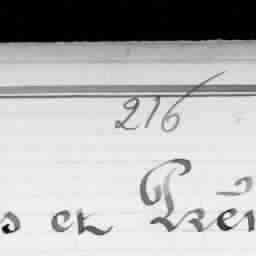 216
s et Prén